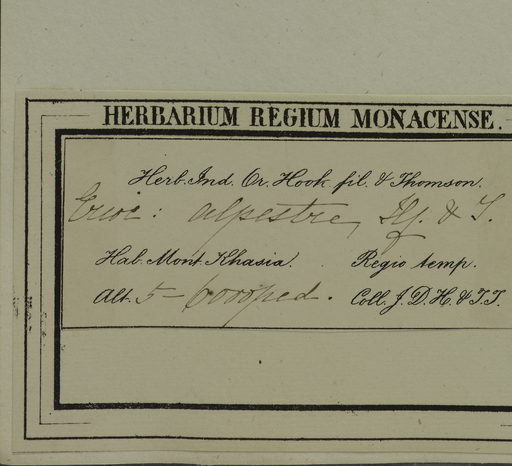 HERBARIUM REGIUM MONACENSE.
Herb. Ind. Or. Hook. fil. & Thomson.
Erioc: alpestre, Hf. & T.
Hab. Mont Khasia. Regio temp.
Alt. 5-6000 ped. Coll. J. D. H. & T. T.